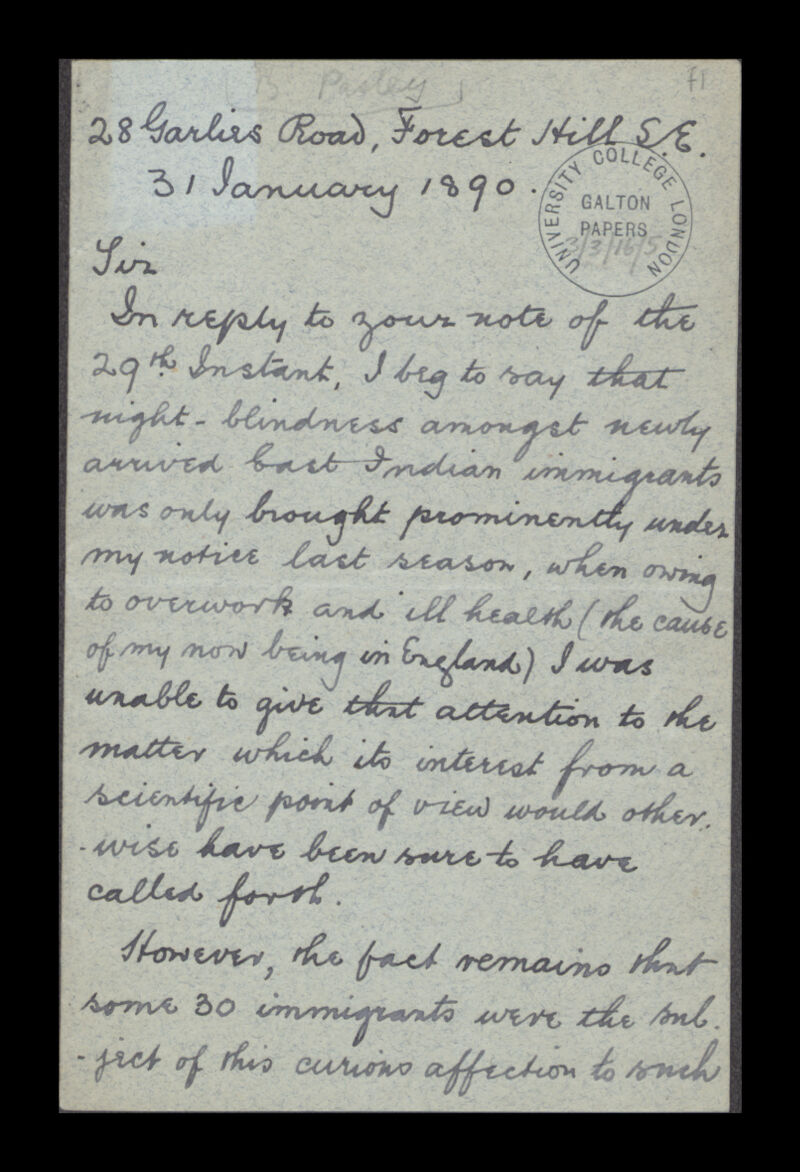 (B Pasley)
f1
28 Garlies Road, Forest Hill S.E.
31 January 1890.
UNIVERSITY COLLEGE LONDON
GALTON
PAPERS
3/3/16/5
Sir
In reply to your note of the
29th. Instant, I beg to say that
night-blindness amongst newly
arrived East Indian immigrants
was only brought prominently under
my notice last season, when owing
to overwork and ill health (the cause
of my now being in England) I was
unable to give that attention to the
matter which its interest from a
scientific point of view would other.
-wise have been sure to have
called forth.
However, the fact remains that
some 30 immigrants were the sub.
-ject of this curious affection to such